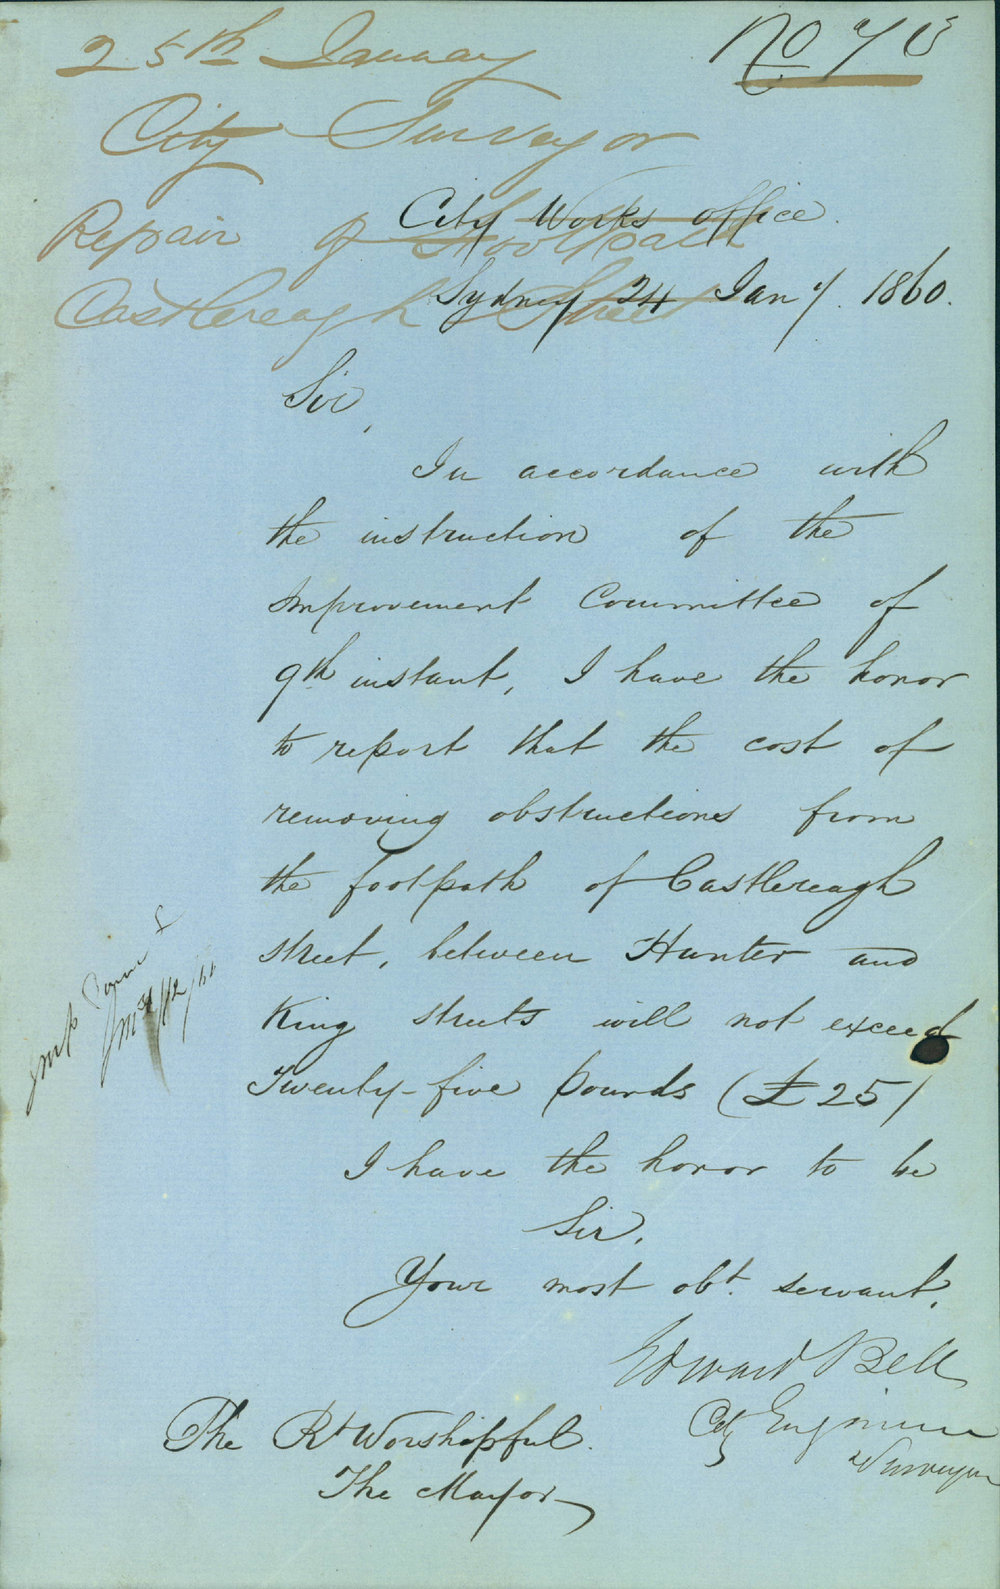 25th January
No 70
City Surveyor
Repair of Footpath
Castlereagh Street
City Works office.
Sydney 24 Jany. 1860.
Sir,
In accordance with
the instruction of the
Improvement Committee of
9th instant, I have the honor
to report that the cost of
removing obstructions from
the footpath of Castlereagh
street, between Hunter and
King streets will not exceed
Twenty-five pounds (£25)
I have the honor to be
Sir.
Your most obt. servant,
Edward Bell
City Engineer
& Surveyor
The Rt Worshipful.
The Mayor